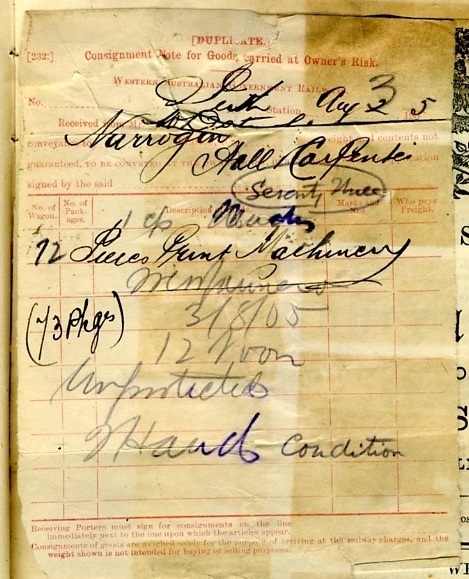 [DUPLICATE.]
[232:] Consignment Note for Goods, carried at Owner's Risk.
WESTERN AUSTRALIAN GOVERNMENT RAILWAYS
No. Perth Station, Aug 3 1905
Received from
Narrogin weight and contents not
conveyance to Hall Carpenter
guaranteed, TO BE CONVEYED AT THE
signed by the said Seventy three
No. of Wagon. No. of Packages. Description Marks and Nos. Who pays Freight.
1 c/s
72 Pieces Print Machinery
(73 Pkges) 3/8/05
12 Noon
Unprotected
2 Hand Condition
Receiving Porters must sign for consignments on the line
immediately next to the one upon which the articles appear.
Consignments of goods are weighed solely for the purpose of arriving at the railway charges, and the
weight shown is not intended for buying or selling purposes.